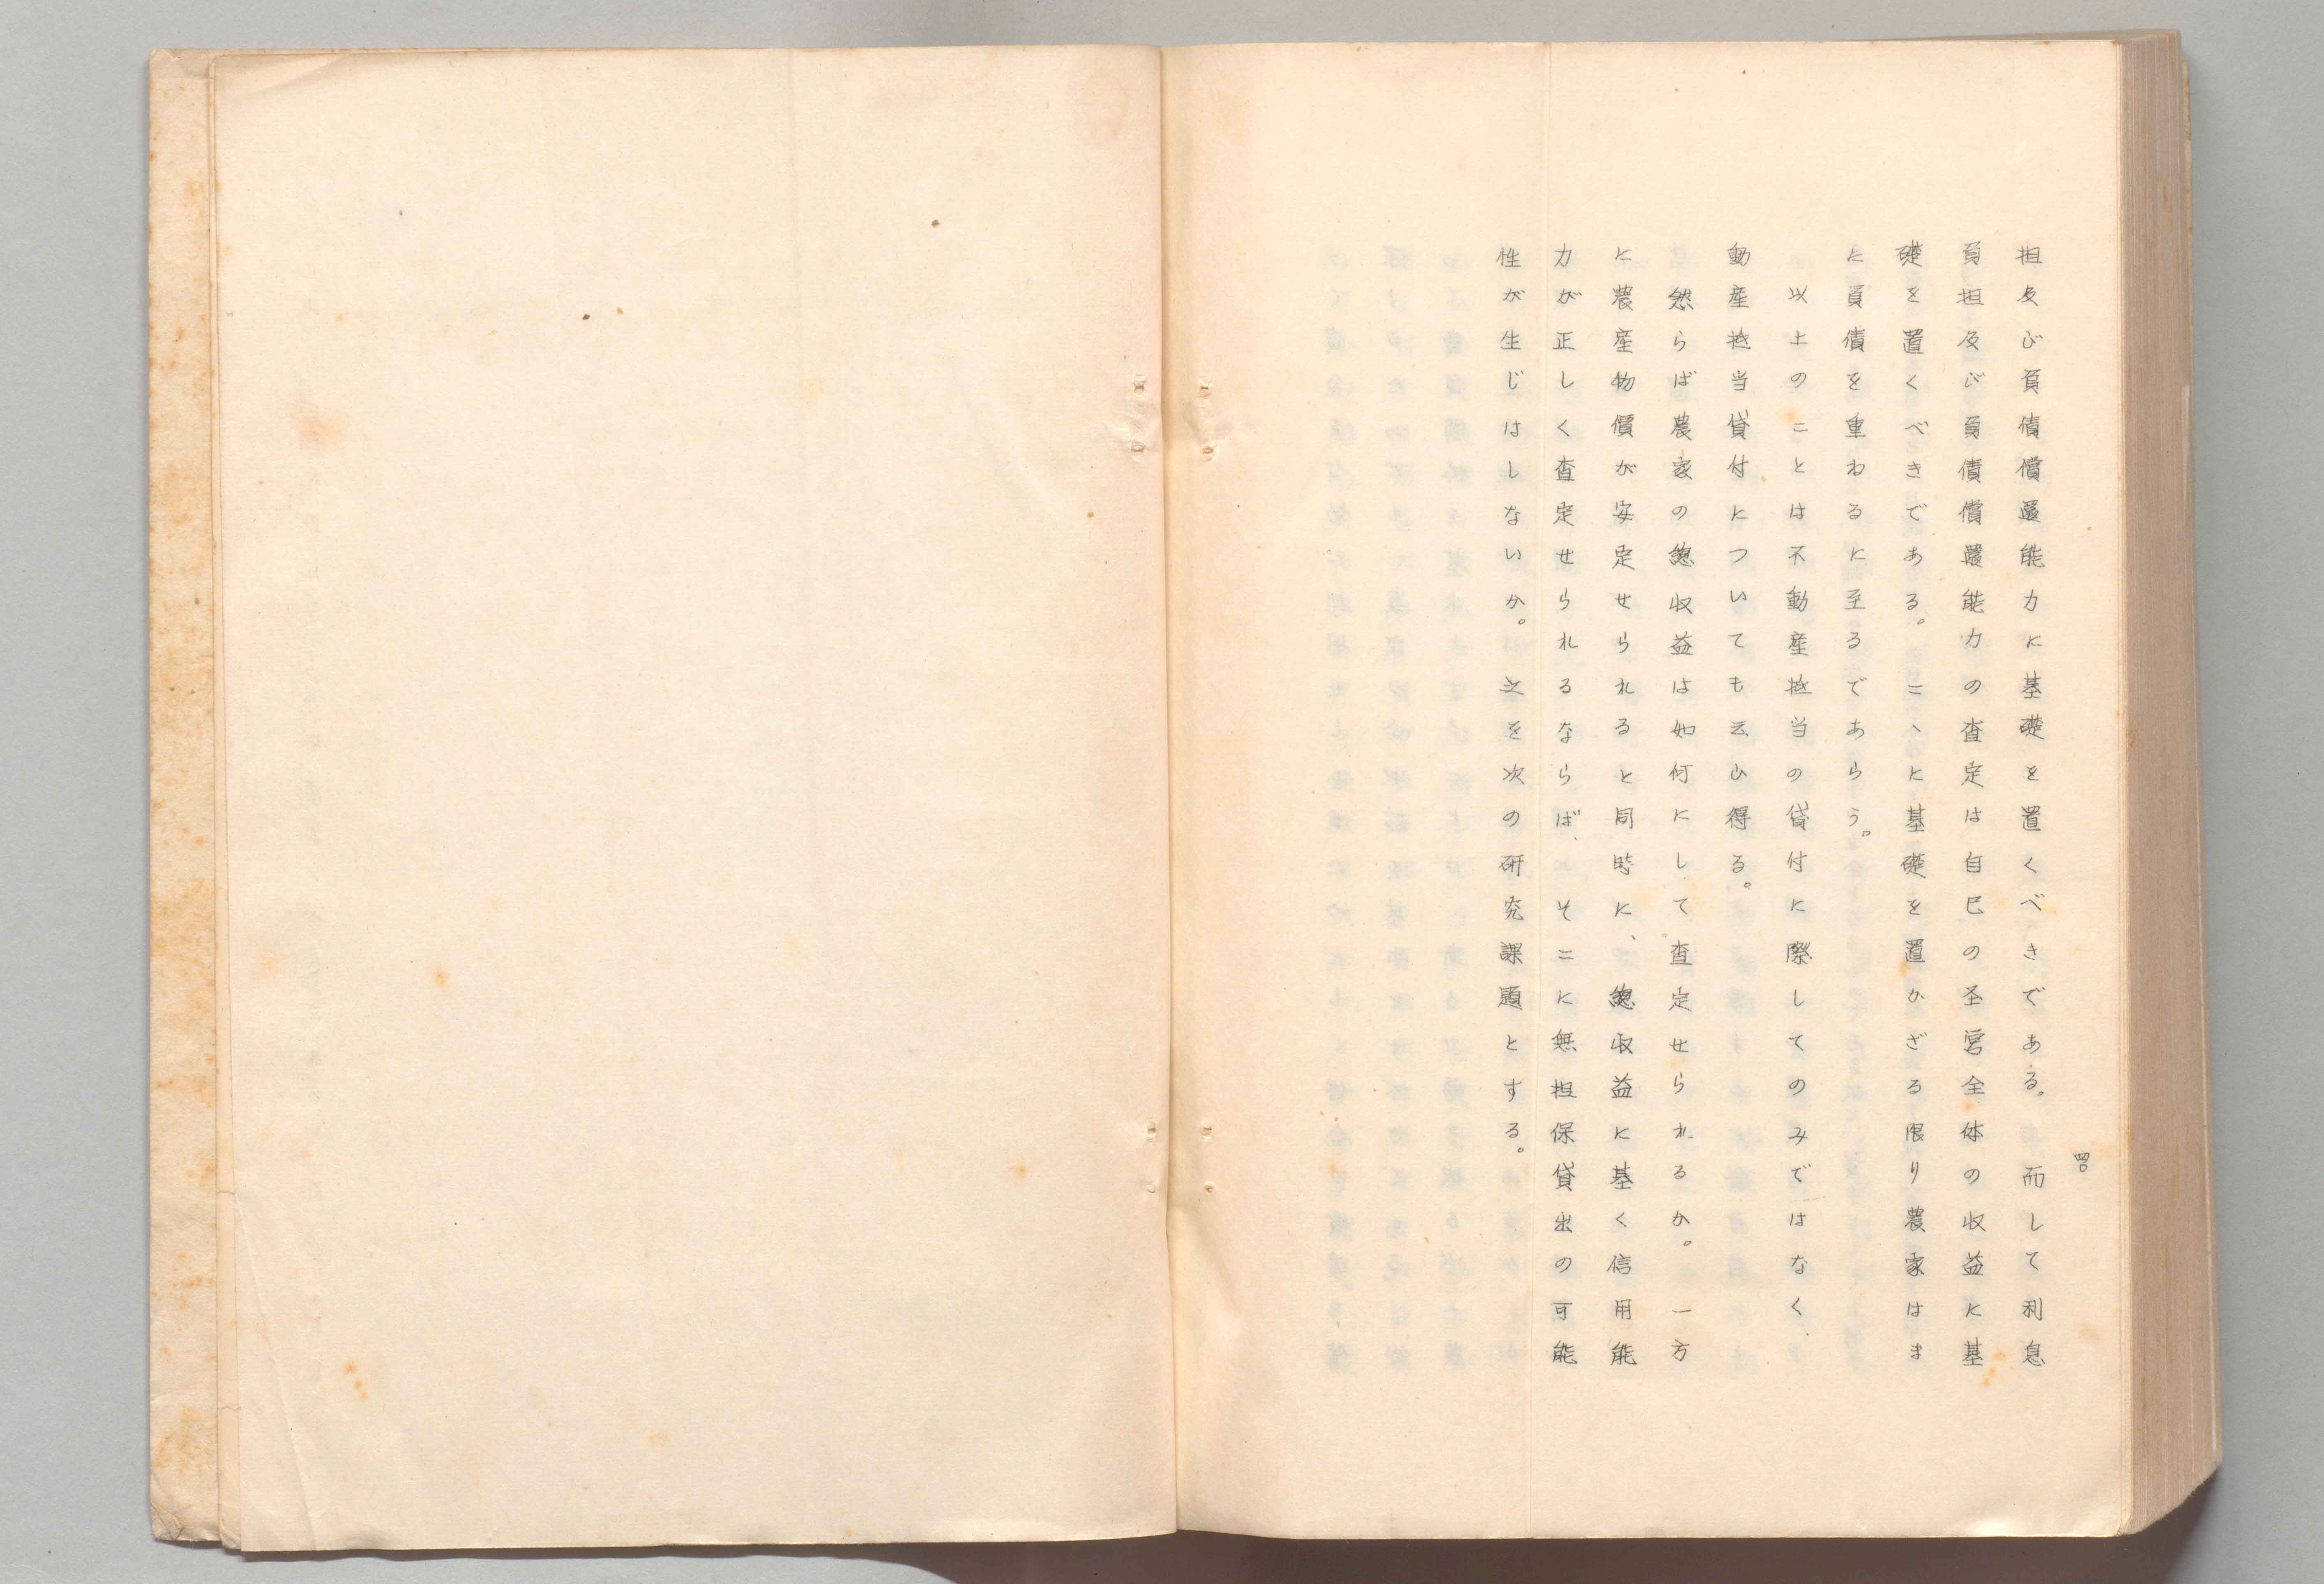 担及び負債償還能力に基礎を置くべきである。而して利息
負担及び負債償還能力の査定は自己の圣営全体の収益に基
礎を置くべきである。こゝに基礎を置かざる限り農家はま
た負債を重わるに至るであらう。
以上のことは不動産抵当の貸付に際してのみではなく、
動産抵当貸付についても云ひ得る。
然らば農家の總収益は如何にして査定せられるか。一方
に農産物價が安定せられると同時に、總収益に基く信用能
力が正しく査定せられるならば、そこに無担保貸出の可能
性が生じはしないか。之を次の研究課題とする。
四〇